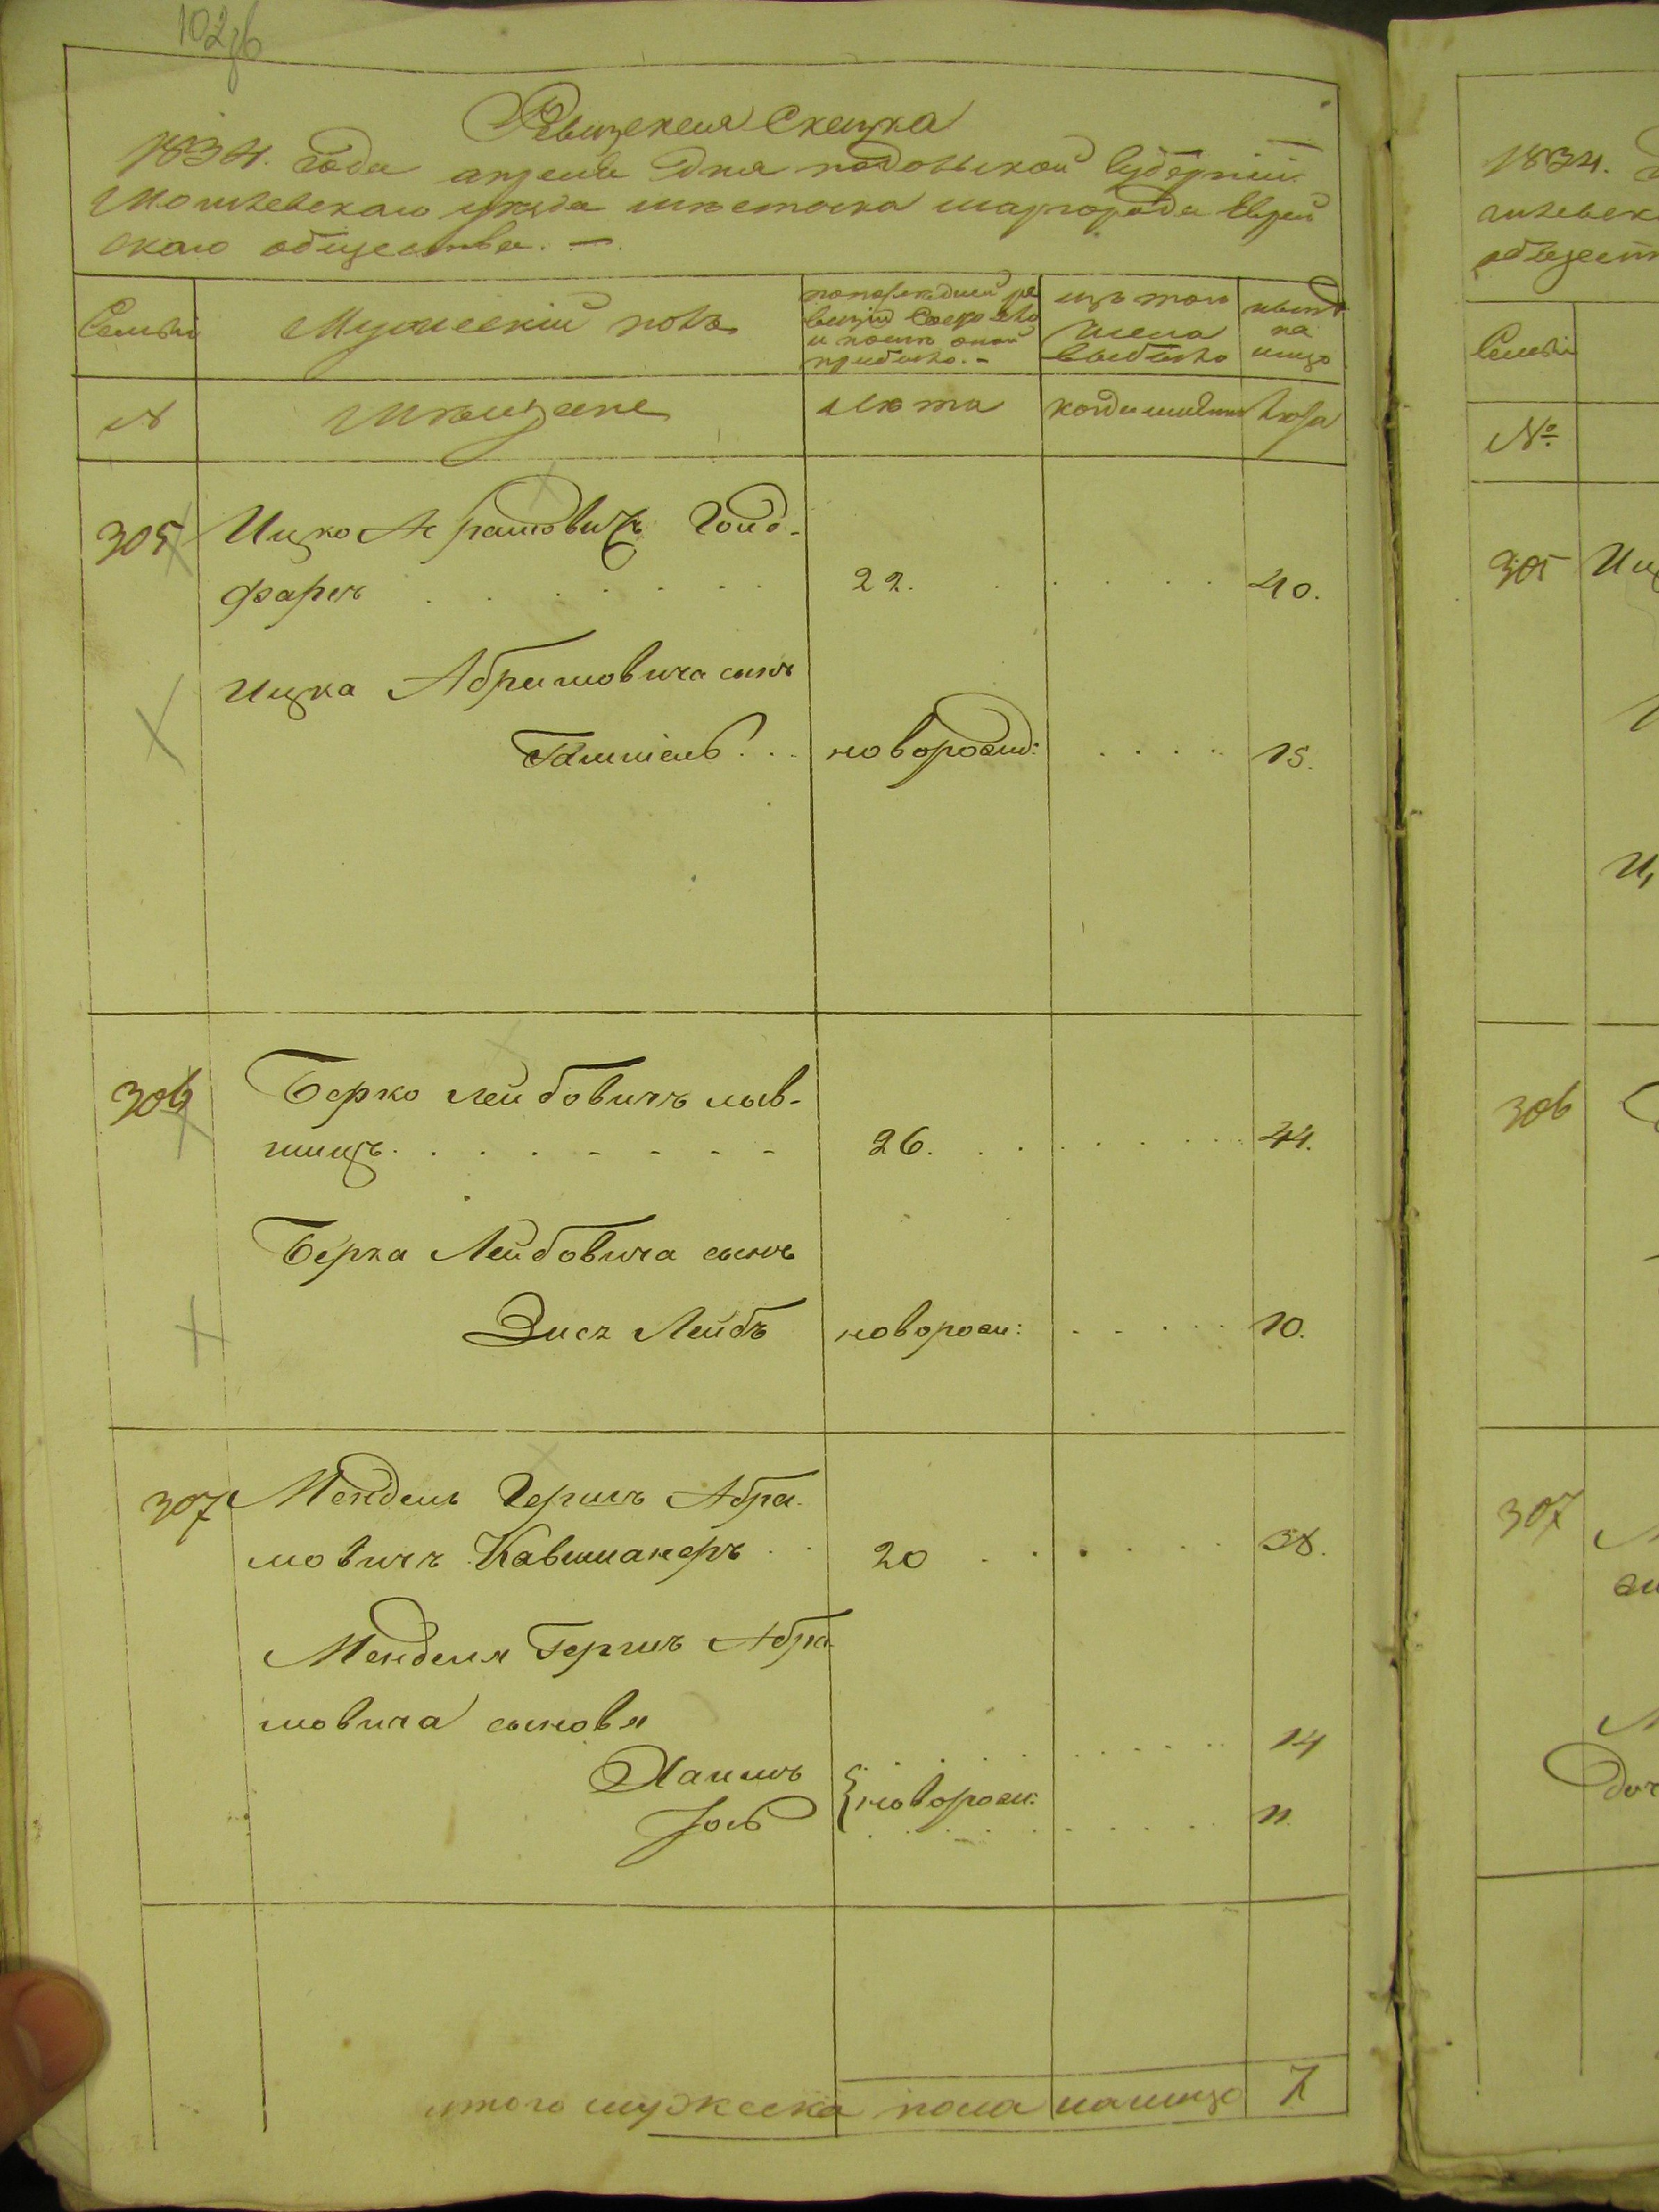 102об
Ревизская Сказка
1834. Года апреля дня подольской Губернiи
Могилевскаго уезда местечка шаргорода Еврей
скаго общества. —
Семьи
Мужескiй полъ
по последней ре
визiи состояло
и после оной
прибыло. -
изъ того
числа
выбыло
ныне
на
лицо
№
Мещане
лета
когда именно
лета
305
Ицко Абрамовичъ Голд-
фарбъ . . . . . . .
22. . . . . .
40.
Ицка Абрамовича сынъ
. . .
новорожд:
. . . .
15.
306
Берко Лейбовичъ лив-
шицъ. . . . . . . .
26. . . . . . .
44.
Берка Лейбовича сынъ
Зись Лейбъ
новорож:
. . . . .
10.
307
Мендель Гершъ Абра-
мовичъ Кавшанеръ . .
20 . . . . . .
38.
Менделя Гершъ Абра-
мовича сыновья
Хаимъ
14
Iось
новорож:
11.
итого мужеска пола налицо
7
1834.
Семьи
№
305
306
307